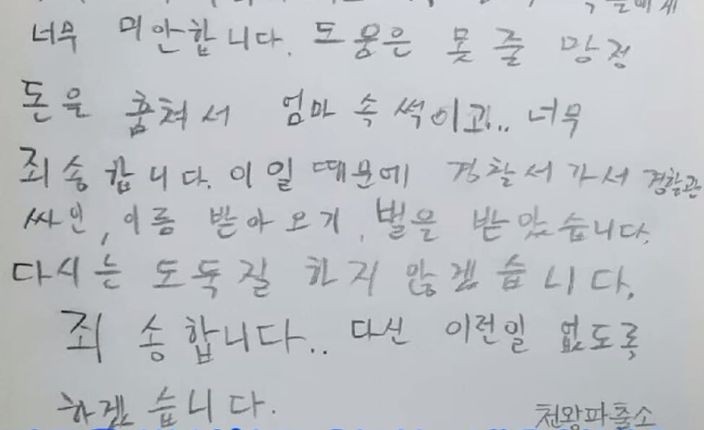 너무 미안합니다. 도움은 못 줄 망정
돈을 훔쳐서 엄마 속 썩이고.. 너무
죄송합니다. 이일 때문에 경찰서 가서 경찰관
싸인, 이름 받아오기, 벌을 받았습니다.
다시는 도둑질 하지 않겠습니다.
죄송합니다.. 다신 이런일 없도록
하겠습니다.
천왕파출소